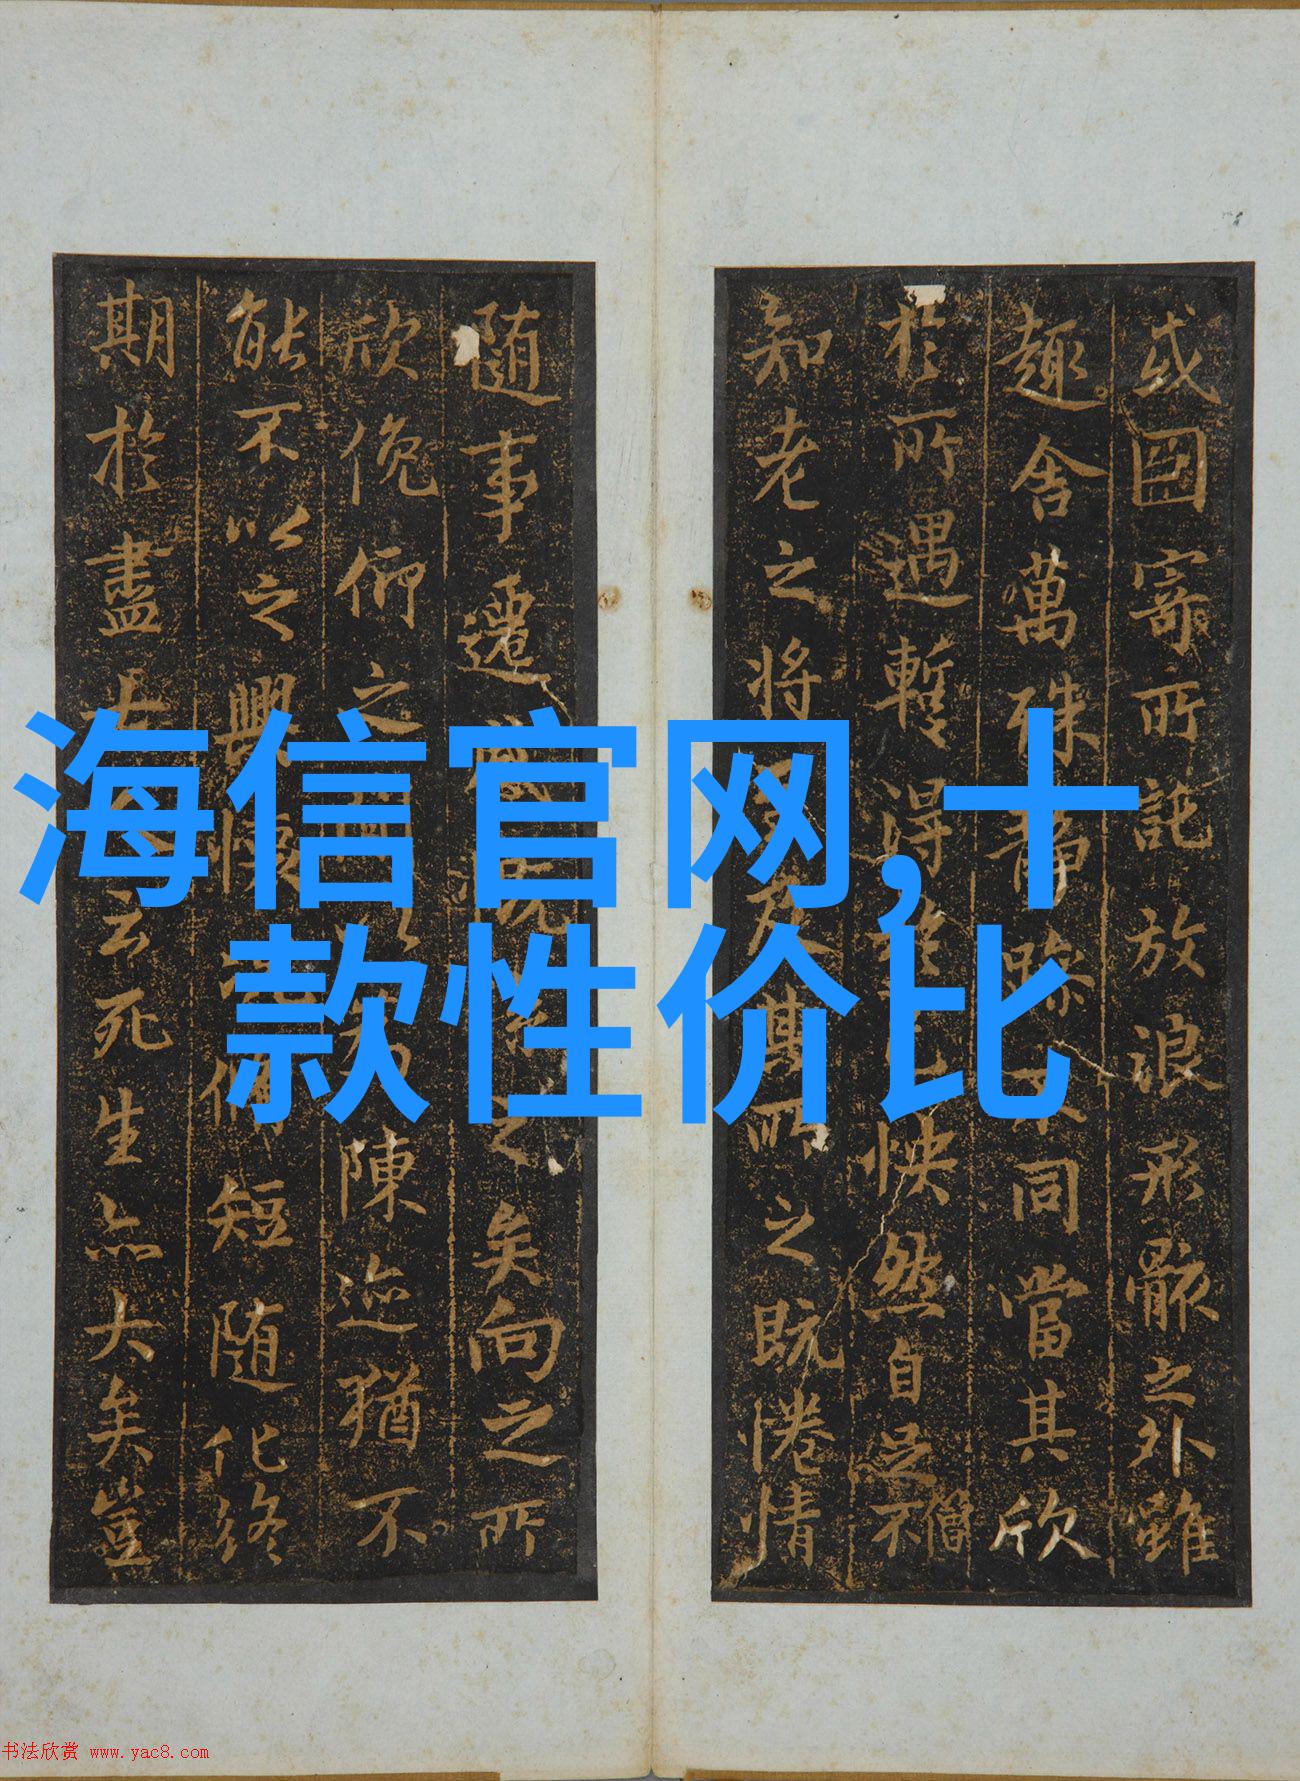 海信官网,十
款性价比
或因寄所託放浪形骸之外雖
趣舍萬殊靜躁不同當其欣
於所遇暫得於己怏然自足不 僧
知老之將至及其所之既惓情
隨事遷感慨係之矣向之所
欣俛仰之間以為陳迹猶不
能不以之興懷況脩短隨化終
期於盡古人云死生亦大矣豈
书法欣赏 www.yac8.com